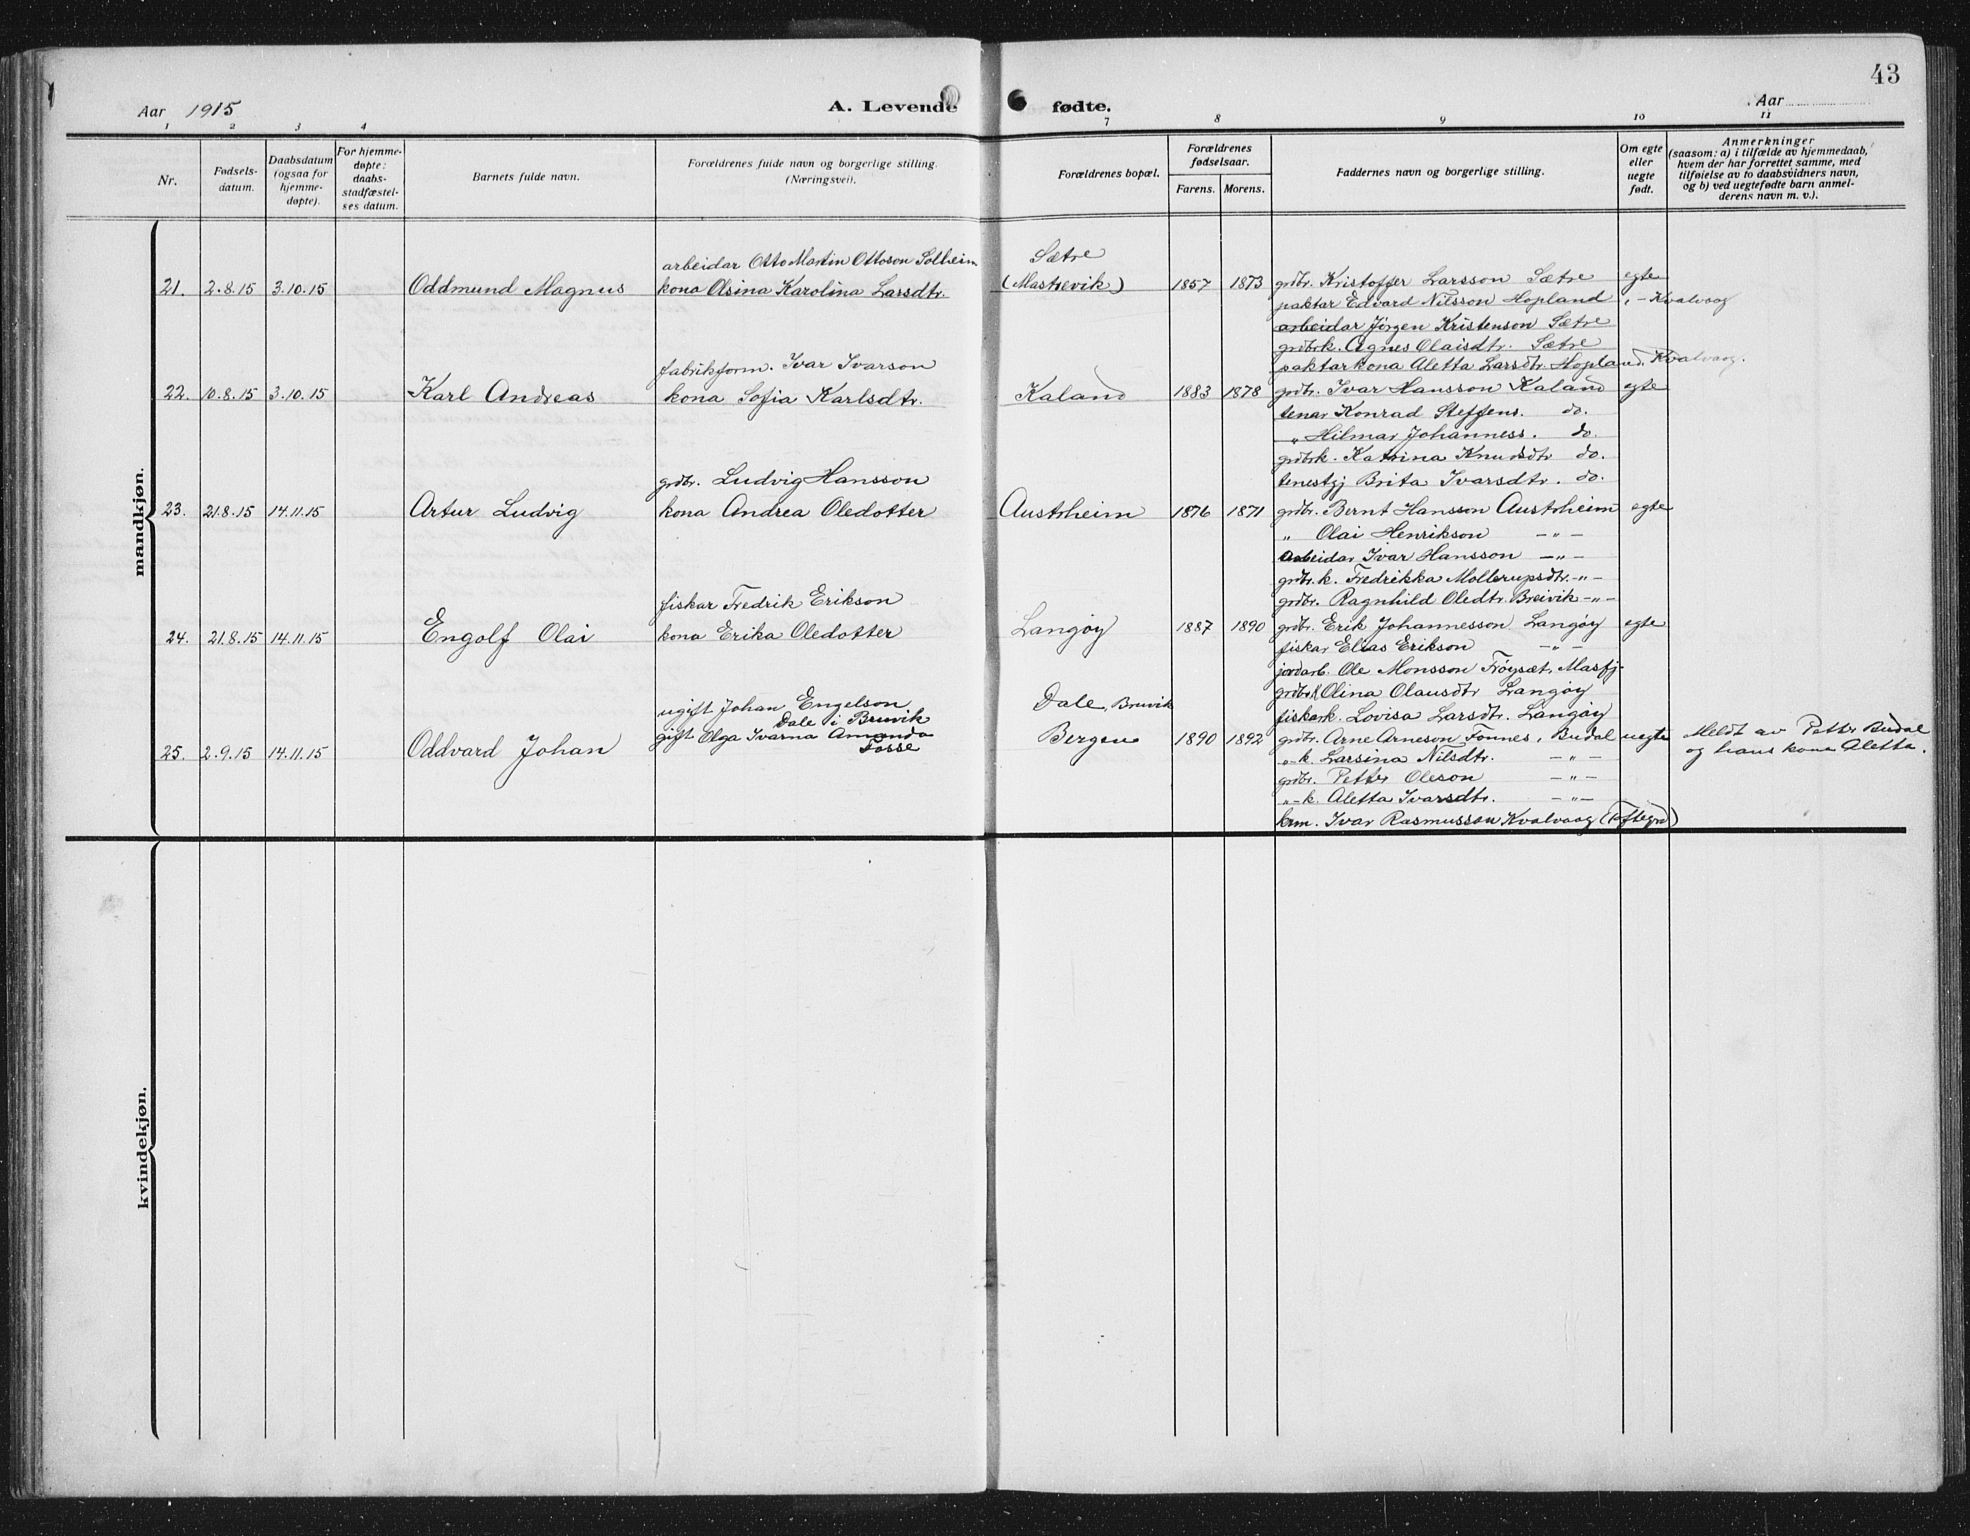 43
Aar 1915
A. Levende fødte.
Aar
1 2 3 4 7 8 9 10 11
Nr.
Fødsels-
datum.
Daabsdatum
(ogsaa for
hjemme-
døpte).
For hjemme-
døpte:
daabs-
stadfæstel-
ses datum.
Barnets fulde navn.
Forældrenes fulde navn og borgerlige stilling.
(Næringsvei).
Forældrenes bopæl.
Forældrenes
fødselsaar.
Farens. Morens.
Faddernes navn og borgerlige stilling.
Om egte
eller
uegte
født.
Anmerkninger
(saasom: a) i tilfælde av hjemmedaab,
hvem der har forrettet samme, med
tilføielse av to daabsvidners navn,
og b) ved uegtefødte barn anmel-
derens navn m. v.).
mandkjøn.
21. 2.8.15 3.10.15 Oddmund Magnus
arbeidar Otto Martin Ottoson Solheim
kona Olsina Karolina Larsdtr.
Sætre
(Mastrevik) 1857 1873
grdbr. Kristoffer Larsson Sætre egte
paktar Edvard Nilsson Hopland, - Kvalvaag
arbeidar Jørgen Kristenson Sætre
grdbrk. Agnes Olaisdtr. Sætre
paktarkona Aletta Larsdtr Hopland. Kvalvaag.
22. 10.8.15 3.10.15 Karl Andreas
fabrikform. Ivar Ivarson
kona Sofia Karlsdtr.
Kaland 1883 1878
grdbr. Ivar Hansson Kaland egte
tenar Konrad Steffens. do.
„ Hilmar Johanness. do.
grdbrk. Katrina Knutsdtr do.
tenestgj Brita Ivarsdtr. do.
23. 21.8.15 14.11.15 Artur Ludvig
grdbr. Ludvig Hansson
kona Andrea Oledotter
Austrheim 1876 1871
grdbr. Bernt Hansson Austrheim egte
„ Olai Henrikson -„-
arbeidar Ivar Hansson -„-
grdbr. k. Fredrikka Mollerupsdtr. -„-
grdbr. Ragnhild Oledtr. Breivik -„-
24. 21.8.15 14.11.15 Engolf Olai
fiskar Fredrik Erikson
kona Erika Oledotter
Langøy 1887 1890
grdbr. Erik Johannesson Langøy egte
fiskar Elias Erikson -„-
jordarb. Ole Monsson Frøysæt, Masfj.
grdbrk Olina Olausdtr Langøy
fiskark. Lovisa Larsdtr. Langøy
25. 2.9.15 14.11.15 Oddvard Johan
ugift Johan Engelson
Dale i Bruvik
gift Olga Ivarna Amanda
Fosse
Dale, Bruvik
Bergen 1890 1892
grdbr. Arne Arneson Fonnes, Budal uegte
„-k. Larsina Nilsdtr. -„-
grdbr. Petter Oleson -„-
„-k. Aletta Ivarsdtr. -„-
krm. Ivar Rasmusson Kvalvaag (Toftegrd)
Meldt av Petter Budal
og hans kona Aletta.
kvindekjøn.